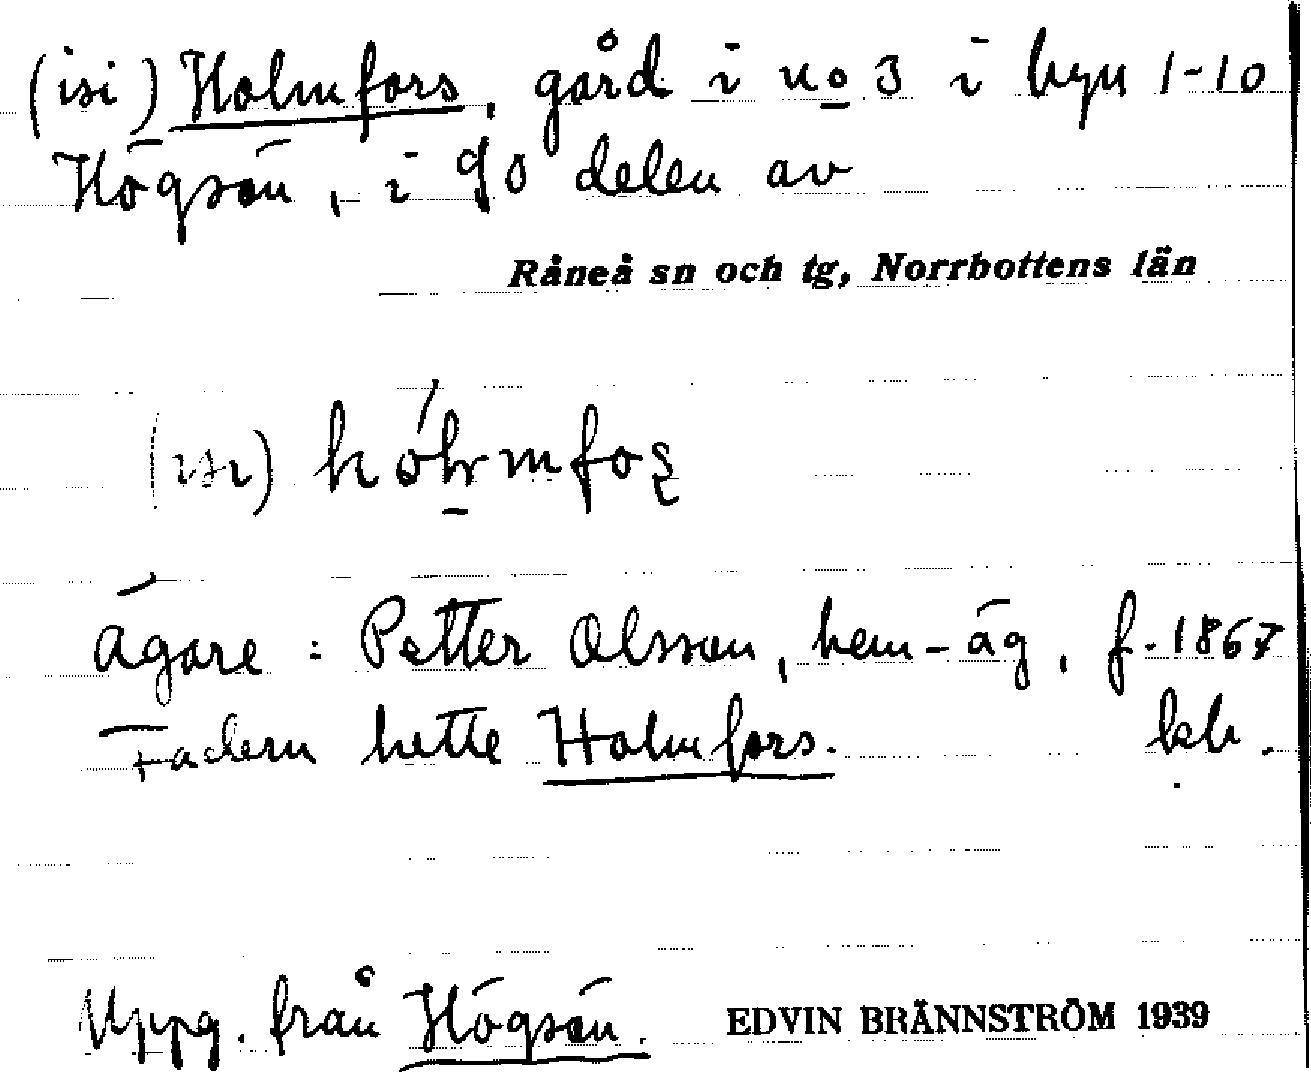 (isi) Holmfors, gård i no 3 i byn 1-10
Högsön, i SO delen av
Råneå sn och tg, Norrbottens län
(isi)
Ägare: Petter Olsson, hem-äg, f. 1867
Fadern hette Holmfors. kb.
Uppg. från Högsön. EDVIN BRÄNNSTRÖM 1939